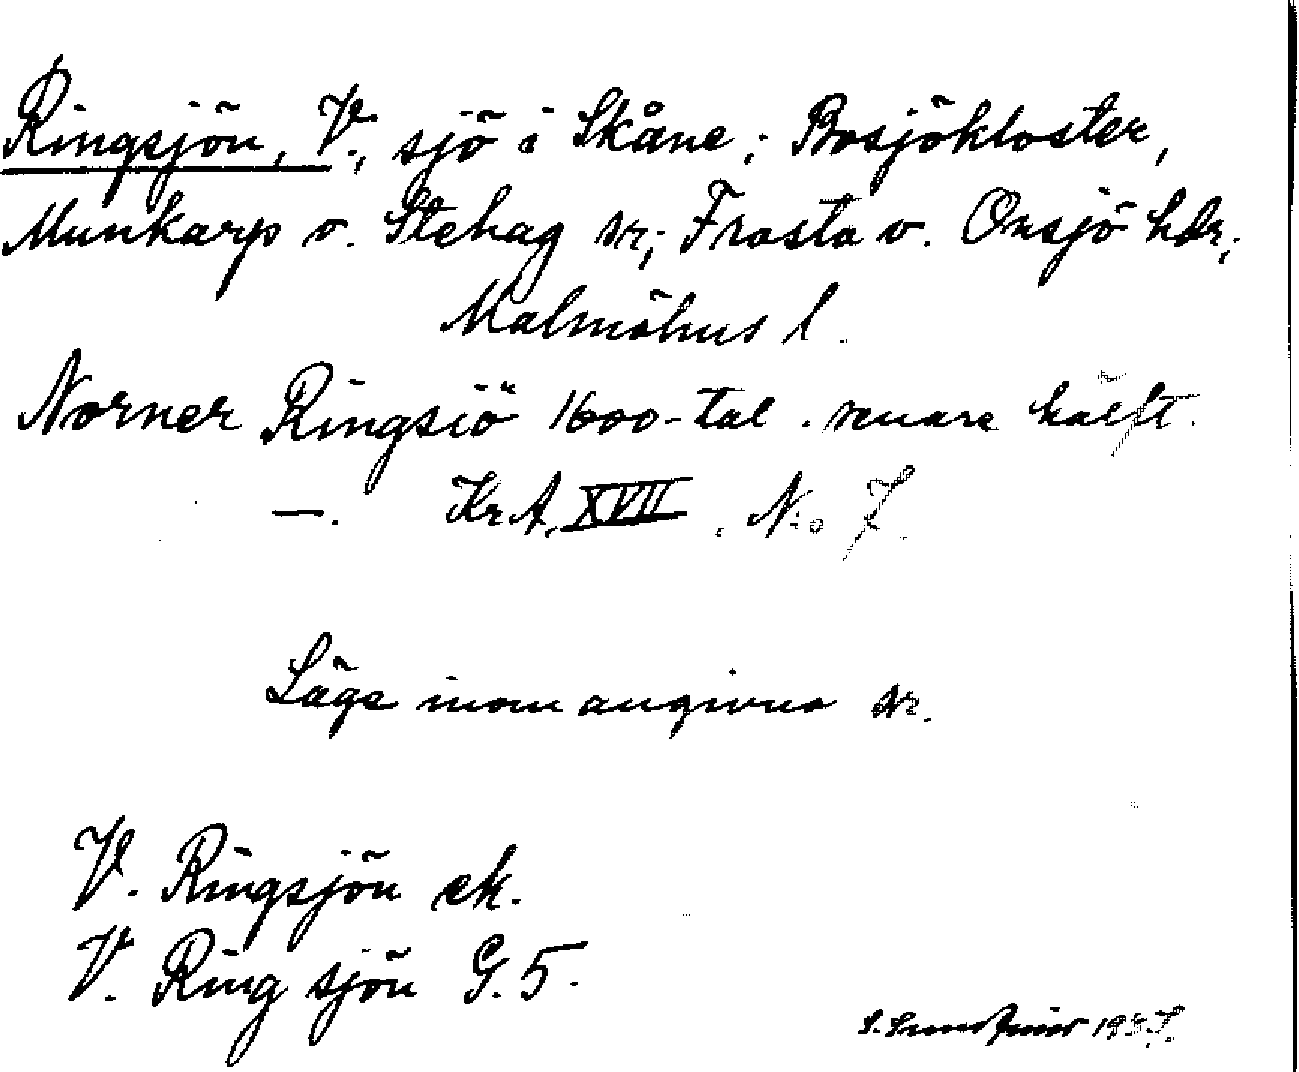 Ringsjön, V., sjö i Skåne; Bosjökloster,
Munkarp o. Stehag sr; Frosta o. Onsjö hdr;
Malmöhus l.
Norner Ringsiö 1600-tal. senare hälft.
—. Kr A, XVII. No 7.
Läge inom angivna sr.
V. Ringsjön ek.
V. Ring sjön G. 5.
S.